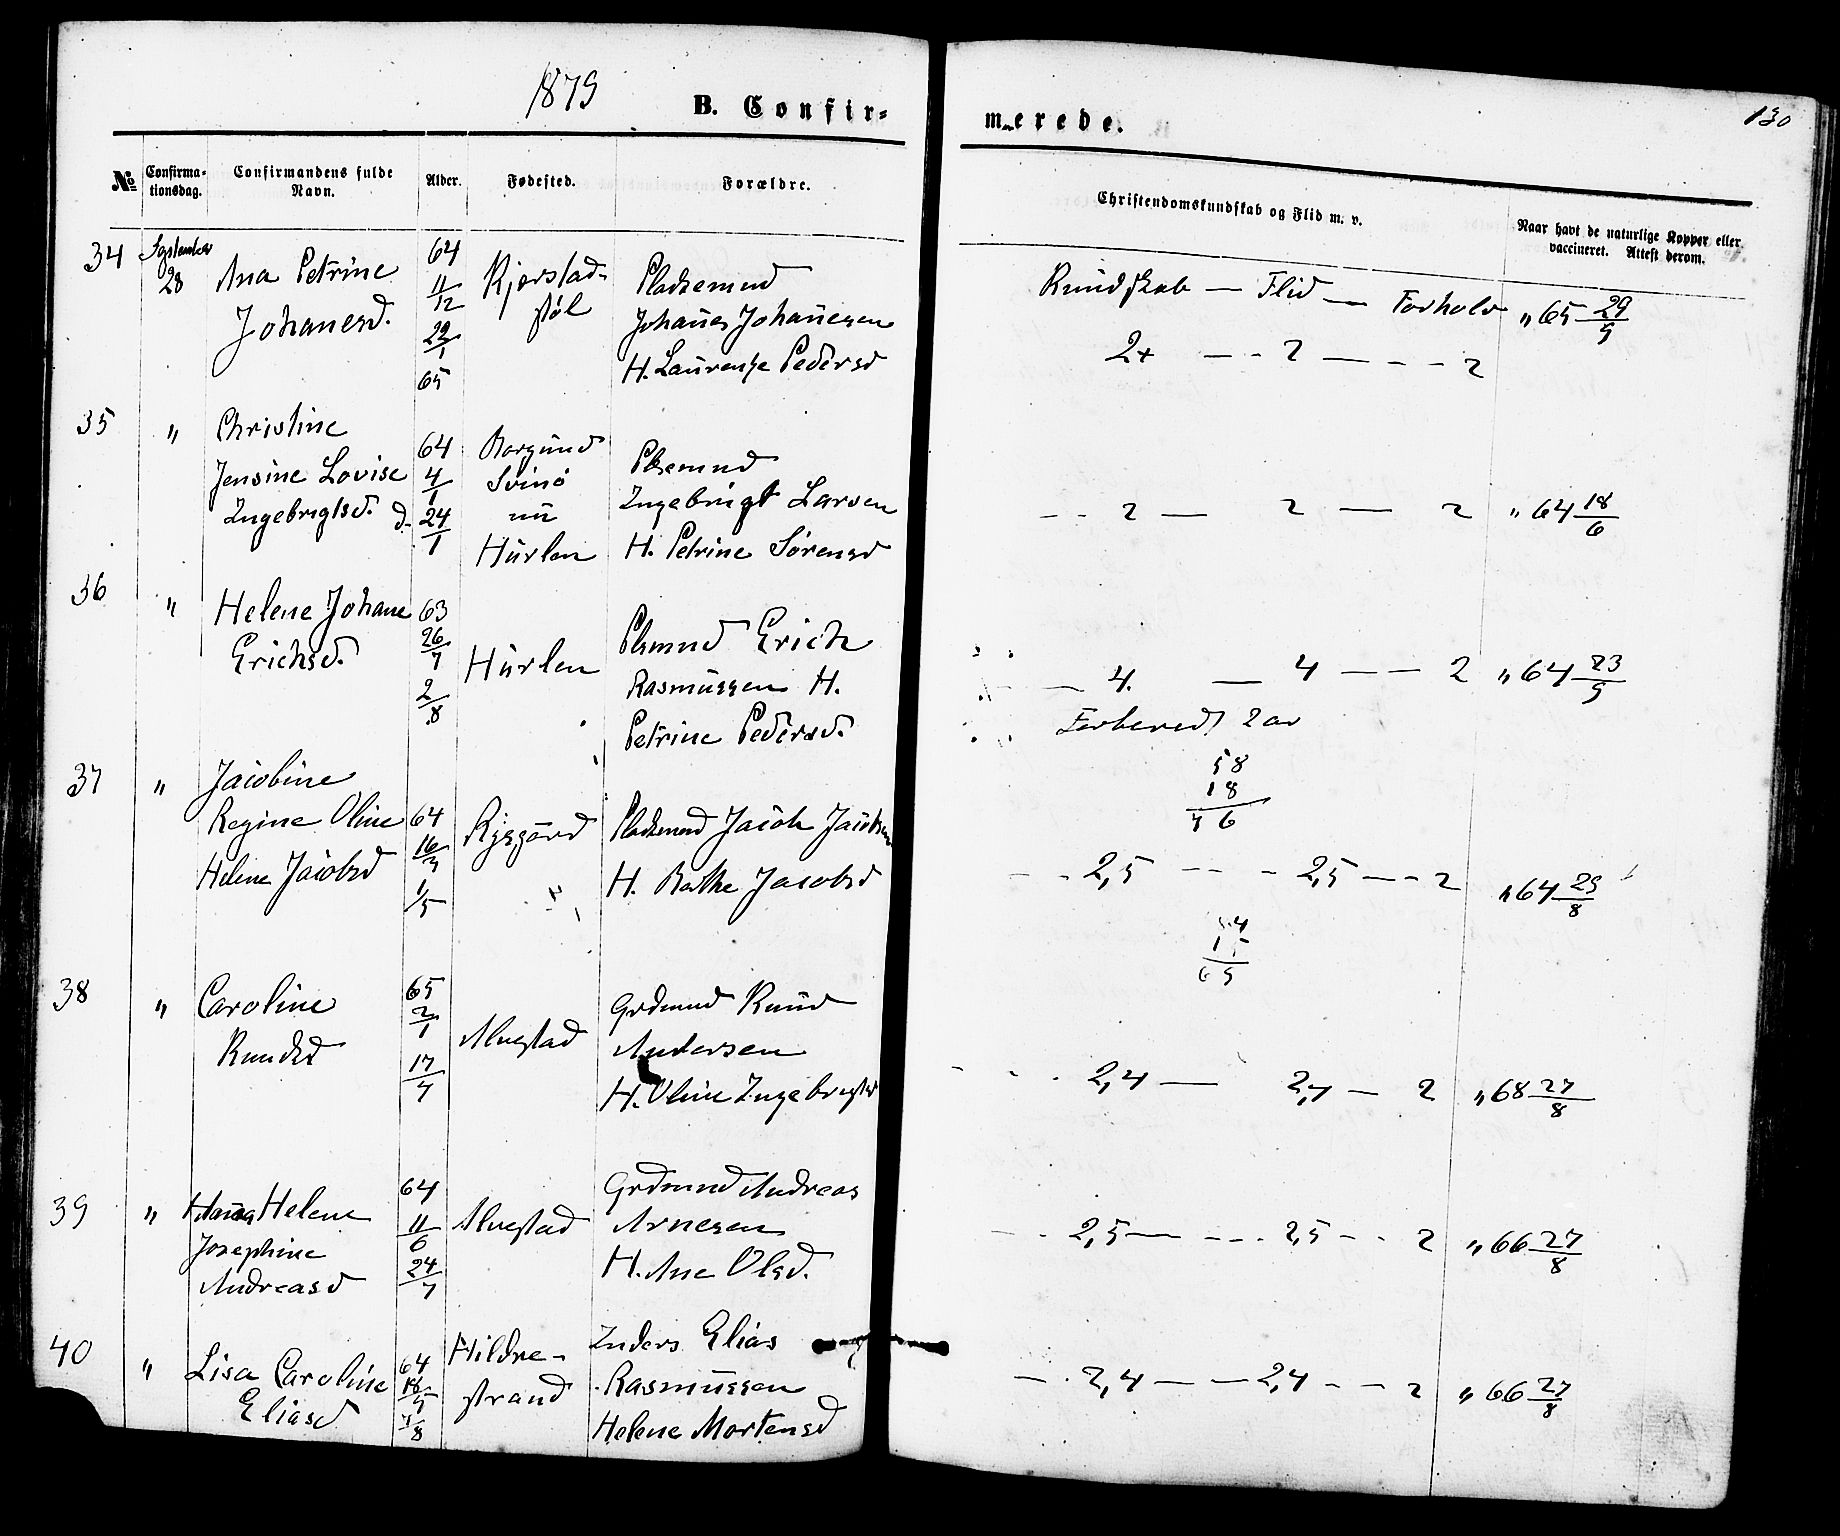 1879
B. Confir-
merede.
130
No
Confirma-
tionsdag.
Confirmandens fulde
Navn.
Alder.
Fødested.
Forældre.
Christendomskundskab og Flid m. v.
Naar havt de naturlige Kopper eller
vaccineret. Attest derom.
34
September
28
Ana Petrine
Johanesd.
64
11/12
22/1
65
Kjerstad-
støl
Pladsemnd
Johanes Johanesen
H. Laurense Pedersd
Kundskab — Flid — Forhold
2+ — - 2 — - - 2
" 65 29/9
35
"
Christine
Jensine Lovise
Ingebrigtsd.
64
4/1
d. 24/1
Borgund
Svinö
nu
Hurlen
Plsemnd
Ingebrigt Larsen
H. Petrine Sörensd
- - 2 — 2 — 2
" 64 18/6
36
"
Helene Johane
Erichsd.
63
26/7
2/8
Hurlen
Plsmnd Erich
Rasmussen H.
Petrine Pedersd.
— 4. — 4 — — 2
Forbered 2 
" 64 23/9
58
18
76
37
"
Jacobine
Regine Oline
Helene Jacobsd
64
16/3
1/5
Rysgård
Pladsemnd Jacob Jacobsen
H. Rathe Jacobsd
- - 2,5 - - - 2,5 — - 2
" 64 29/8
65
38
"
Caroline
Knudsd
65
2/1
17/7
Alvestad
Grdmnd Knud
Andersen
H. Oline Ingebrigtsd
- - - 2,4 — 2,4 — 2
" 68 27/8
39
"
Hansa Helene
Josephine
Andreasd
64
11/6
24/7
Alvestad
Grdmnd Andreas
Arnesen
H. Ane Olsd.
- - 2,5 — - - - 2,5 - - 2
" 66 27/8
40
"
Lisa Caroline
Eliasd
64
18/5
7/8
Hildre-
strand
Inders Elias
Rasmussen
Helene Mortensd
— - 2,4 — — 2,4 - - 2
" 66 27/8